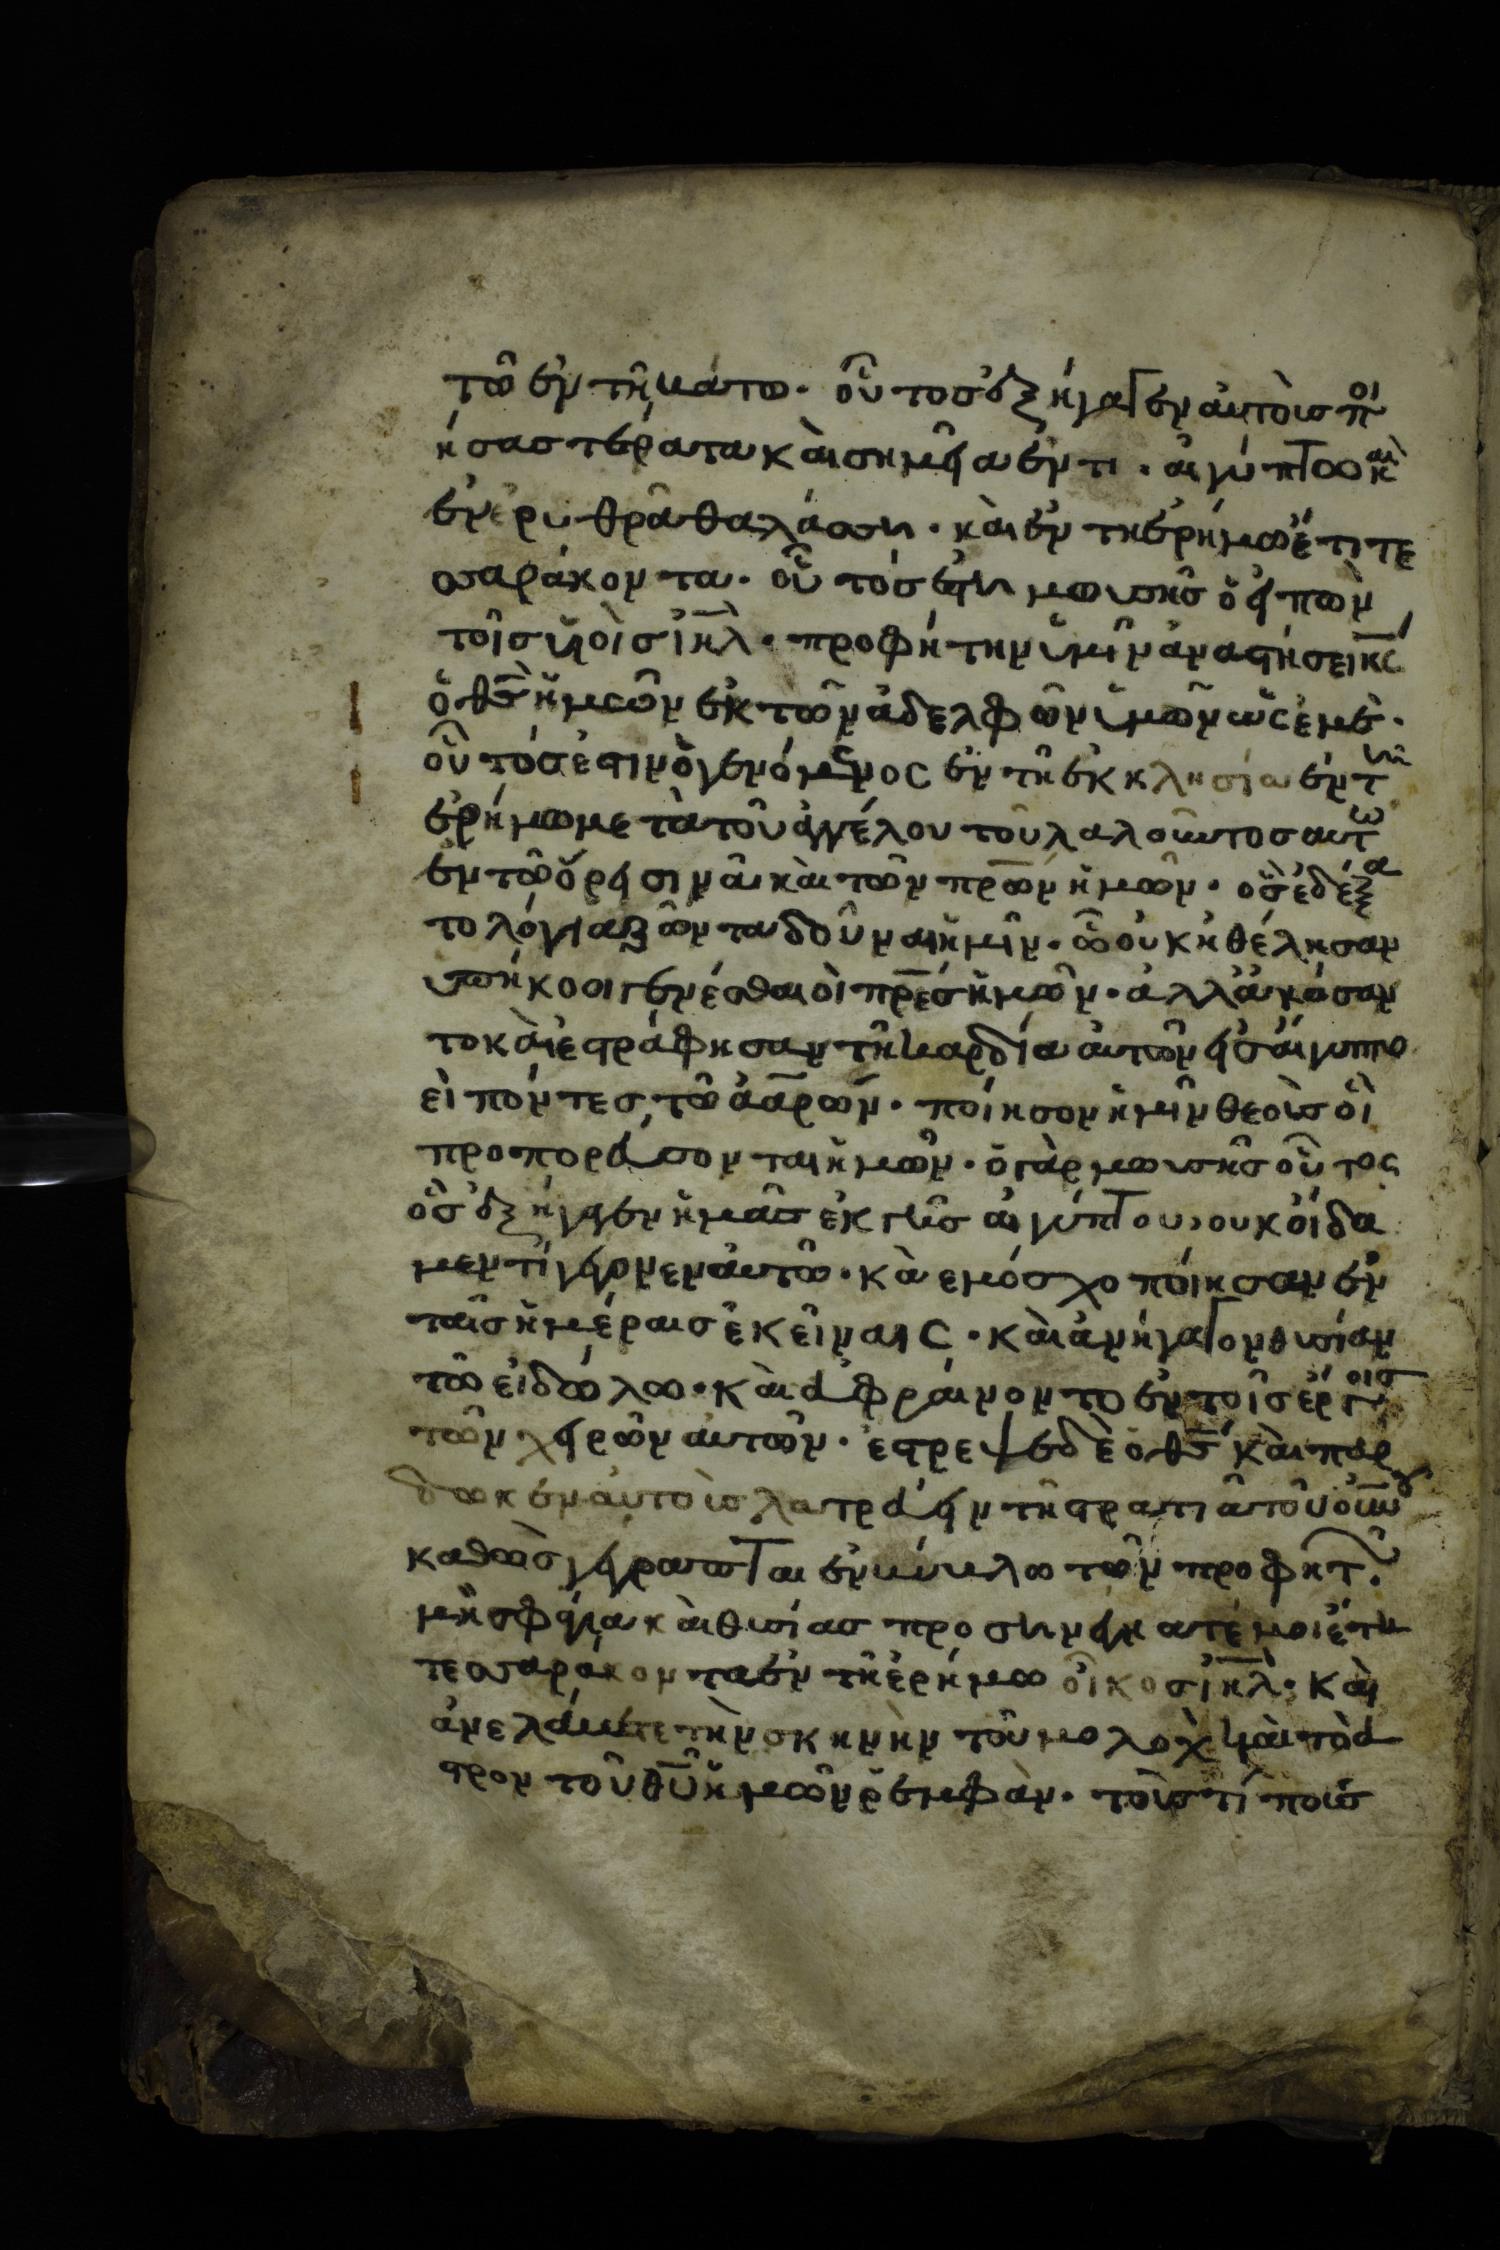 τῶ ἐν τῆ κάτω· οὗτος ἐξήγαγεν ἀυτοὺς ποι
ήσας τέρατα κὰι σημεῖα ἐν τι· αἰγύπτω κὰι
ἐν ἐρυθρᾶ θαλάσση· κὰι ἐν τη ἐρήμω ἔτι τε
σσαράκοντα· οὗτός ἐστιν μωυσῆς ὁ εἰπὼν
τοῖς υἱοὶς ἰη̅λ· προφήτην ὑμῖν ἀναστήσει κ̅ς
ὁ θ̅ς ἡμῶν ἐκ τῶν ἀδελφῶν ὑμῶν ὡς ἐμὲ·
οὗτός ἐστιν ὁ γενόμενος ἐν τῆ ἐκκλησία ἐν τῆ
ἐρήμω μετὰ τοῦ ἀγγέλου τοῦ λαλοῦντος αυτῶ
ἐν τῶ ὄρει σινᾶ κὰι τῶν πρ̅ων ἡμῶν· ὃς ἐδέξα
το λόγια ζῶντα δοῦναι ἡμῖν· ὧ οὐκ ἠθέλησαν
ὑπήκοοι γενέσθαι ὁι πρ̅ες ἡμῶν· ἀλλ ἀπώσαν
το κὰι ἐστράφησαν τῆ καρδία ἀυτῶν εἰς ἄιγυπτο
εἰπόντες τῶ ἀαρών· πόιησον ἡμῖν θεοὺς ὁὶ
προπορεύσονται ἡμῶν· ὁ γὰρ μωυσῆς οὗτος
ὃς ἐξήγαγεν ἡμᾶς ἐκ γῆς ἀιγύπτου, ουκ ὄιδα
μεν τί γέγονεν ἀυτῶ· κὰ εμόσχοπόιησαν ἐν
ταῖς ἡμέραις ἐκεῖναις· κὰι ἀνήγαγον θυσίαν
τῶ εἰδώλω· κὰι εὐφράινοντο ἐν τοῖς ἔργοις
τῶν χειρῶν ἀυτῶν· ἔστρεψεν δὲ ὁ θ̅ς κὰι παρ
έδωκεν ἀυτοὺς λατρεύειν τῆ στρατιᾶ τοῦ ο̅υ̅νου
καθὼς γέγραπται ἐν κύκλω τῶν προφητῶν·
μὴ σφάγια κὰι θυσίας προσηνέγκατέ μοι ἔτη
τεσσαράκοντα ἐν τῆ ἐρήμω οἶκος ἰη̅λ· κὰι
ἀνελάβετε τὴν σκηνὴν τοῦ μολὸχ κὰι τὸ ἄ
στρον τοῦ θ̅υ ἡμῶν ῥεμφάν· τοὺς τύπους